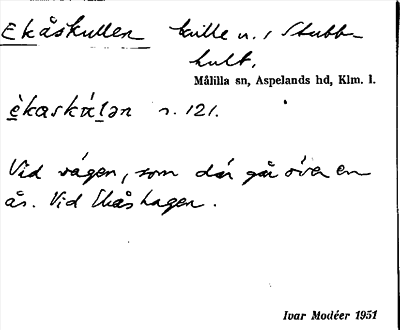 Ekåskullen kulle n. i Stubb-
hult,
Målilla sn, Aspelands hd, Klm. l.
è̱kaskúḻən s. 121.
Vid vägen, som där går över en
ås. Vid Ekåshagen.
Ivar Modéer 1951